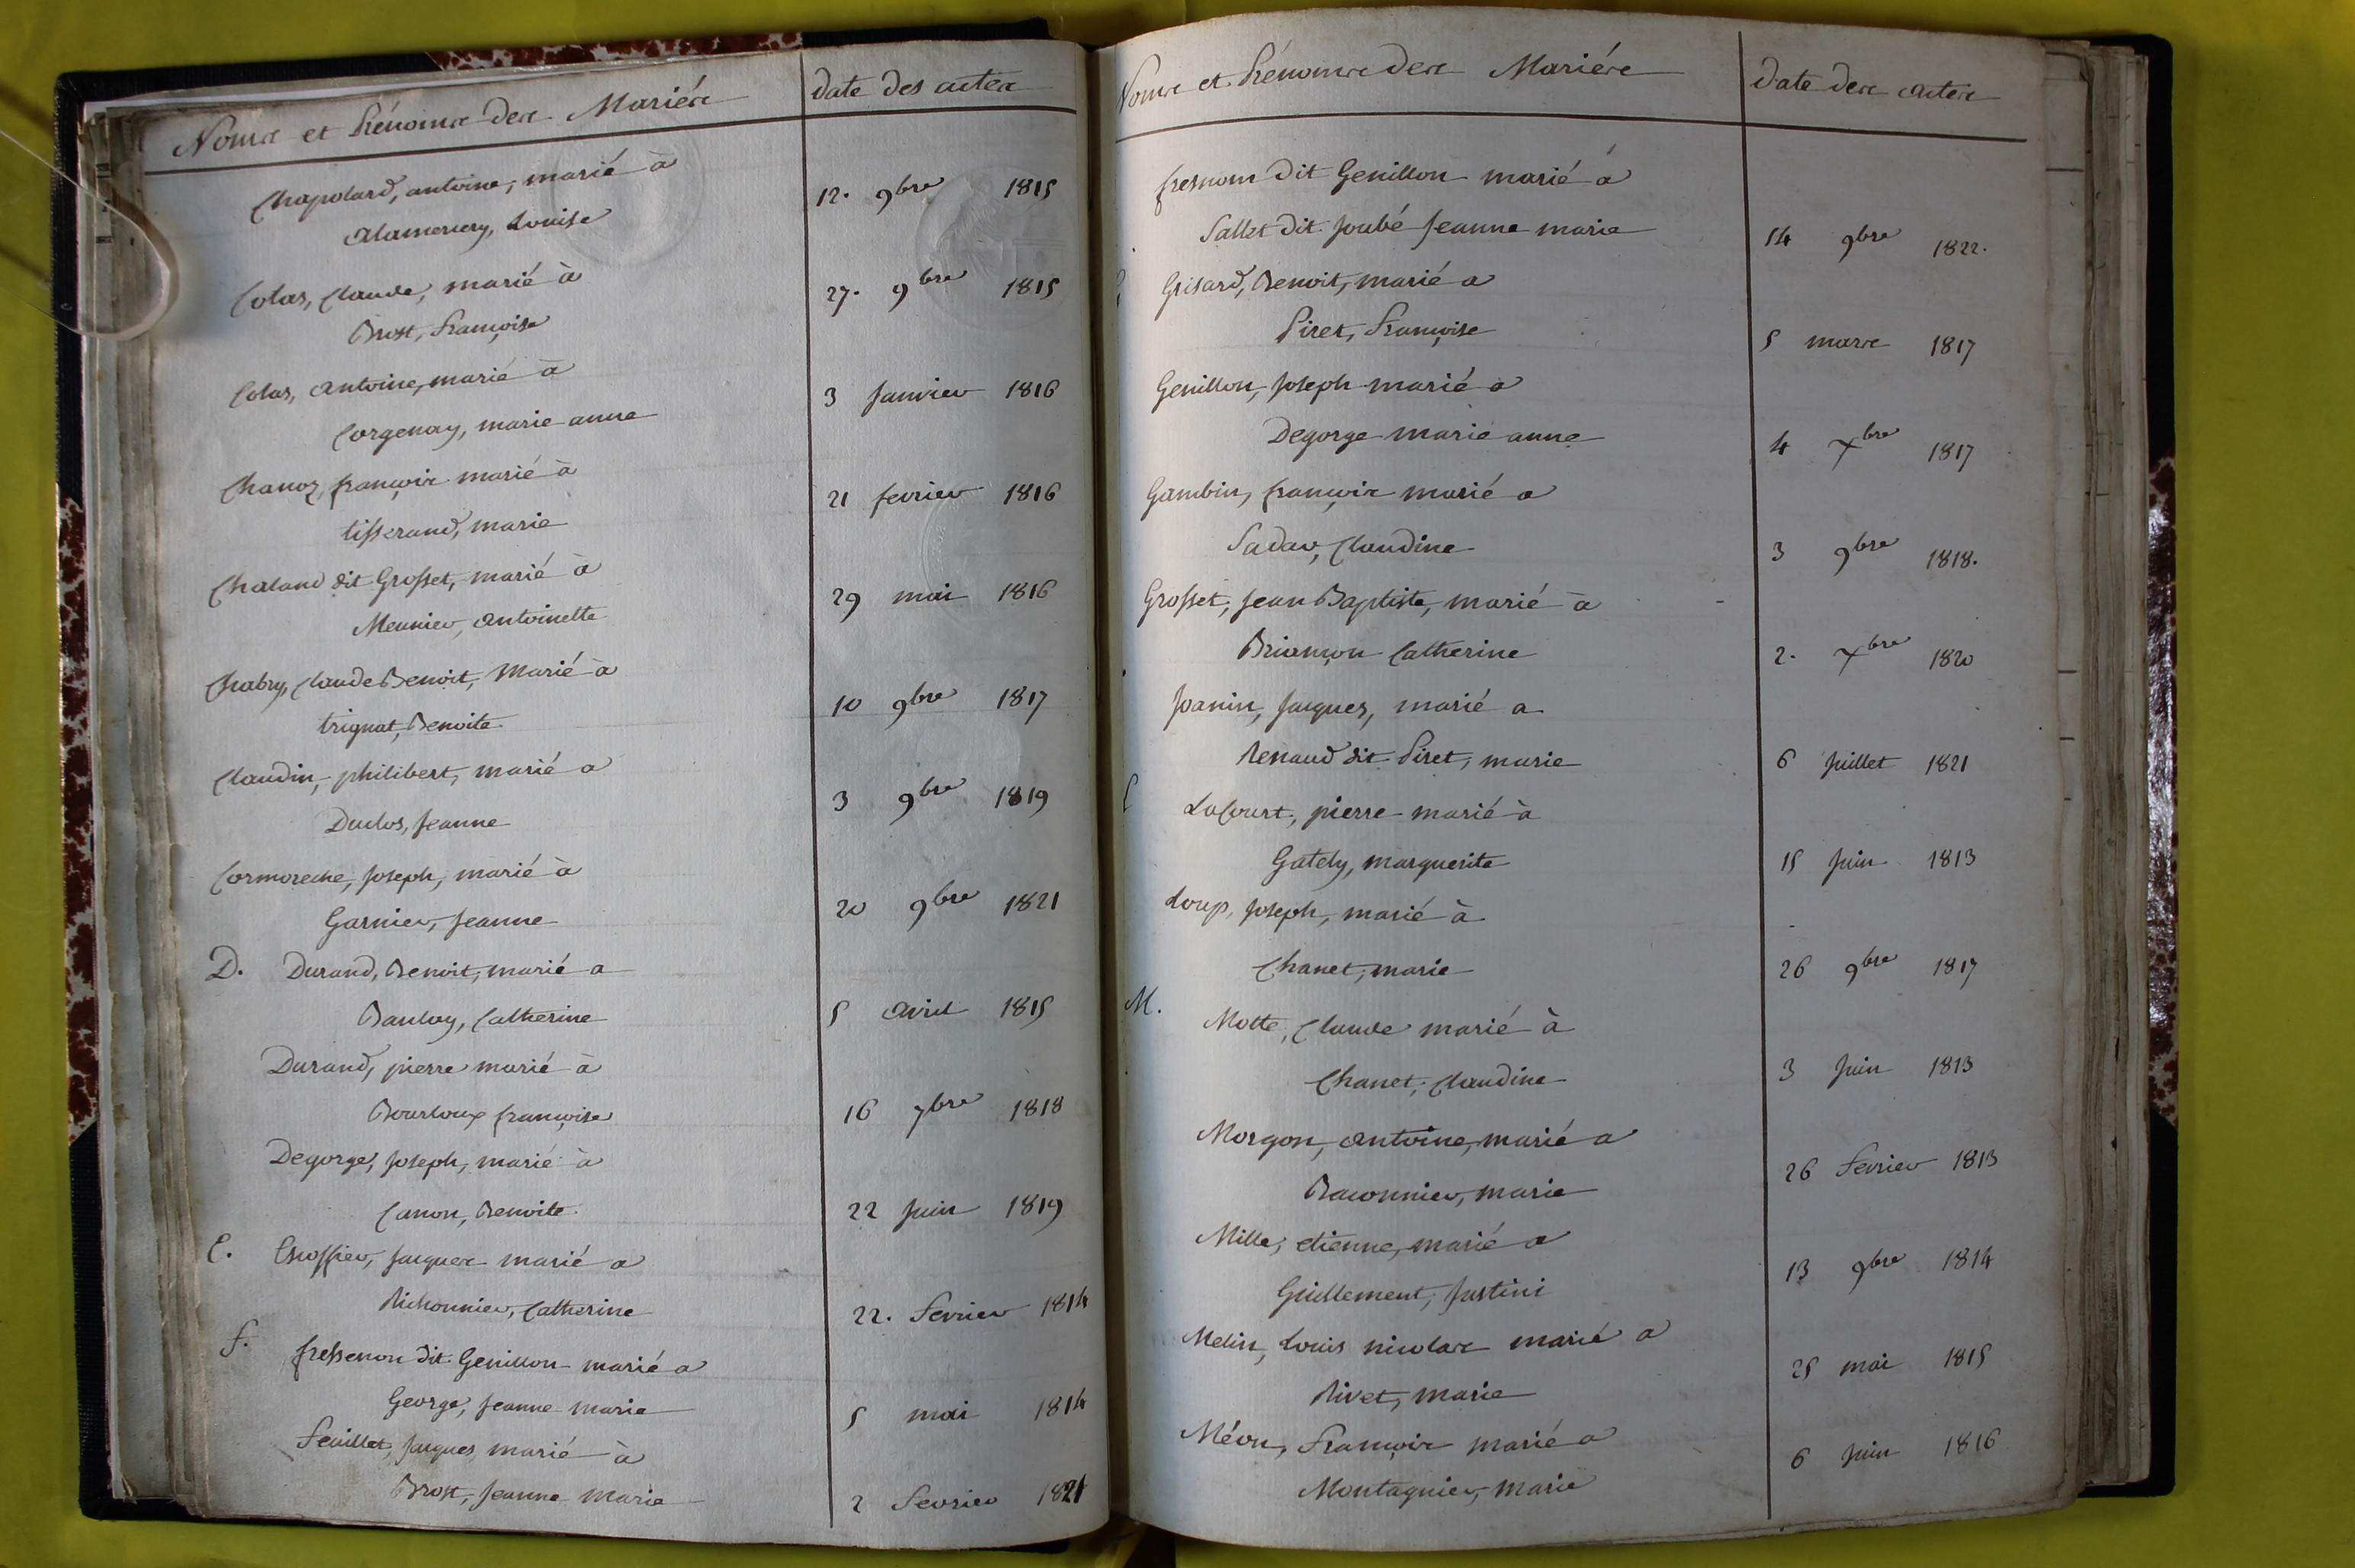 Noms et Prénoms des Mariés date des actes
Chapolard, antoine, marié à
12. 9bre 1815
Alamercery, Louise
Colas, Claude, marié à
27. 9bre 1815
Brost, Françoise
Colas, antoine, marié à
3 Janvier 1816
Corgenay, marie anne
Chanoz, françois marié à
21 fevrier 1816
tisserand, marie
Chaland dit Grosset, marié à
29 mai 1816
Meunier, antoinette
Chabry, Claude Benoit, Marié à
10 9bre 1817
trignat, Benoite
Claudin, philibert, marié a
3 9bre 1819
Duclos, Jeanne
Cormoreche, Joseph, marié à
20 9bre 1821
Garnier, Jeanne
D. Durand, Benoit, marié a
5 avril 1815
Banlay, Catherine
Durand, pierre marié à
16 7bre 1818
Bourloux françoise
Degorge, Joseph, marié à
22 Juin 1819
Canon, Benoite.
E. Escoffier, Jacques marié a
22. Fevrier 1814
Richonnier, Catherine
f. fressenon dit Genillon marié a
5 mai 1814
George, Jeanne marie
Feuillet, Jacques marié à
2 Fevrier 1821
Brost, Jeanne Marie
Noms et Prénoms des Mariés date des actes
fresnom dit Genillon marié à
Sallet dit Joubé Jeanne marie 14 9bre 1822.
Grisard, Benoit, marié a
Piret, Françoise 5 mars 1817
Genillon, Joseph marié a
Degorge marie anne 4 Xbre 1817
Gambin, françois marié a
Sadav, Claudine 3 9bre 1818.
Grosset, Jean Baptiste, marié à
Briançon Catherine 2. Xbre 1820
Joanin, Jacques, marié a
Renaud dit Piret, marie 6 Juillet 1821
L LaCourt, pierre marié à
Gately, marguerite 15 Juin 1813
Loup, Joseph, marié à
Chanet, marie 26 9bre 1817
M. Motte, Claude marié à
Chanet, Claudine 3 Juin 1813
Morgon, antoine, marié a
Baconnier, marie 26 Fevrier 1813
Mille, etienne, marié a
Guillement, Justini 13 9bre 1814
Melin, Louis nicolas marié a
Rivet, marie 25 mai 1815
Méon, François marié a
Montagnier, marie 6 Juin 1816